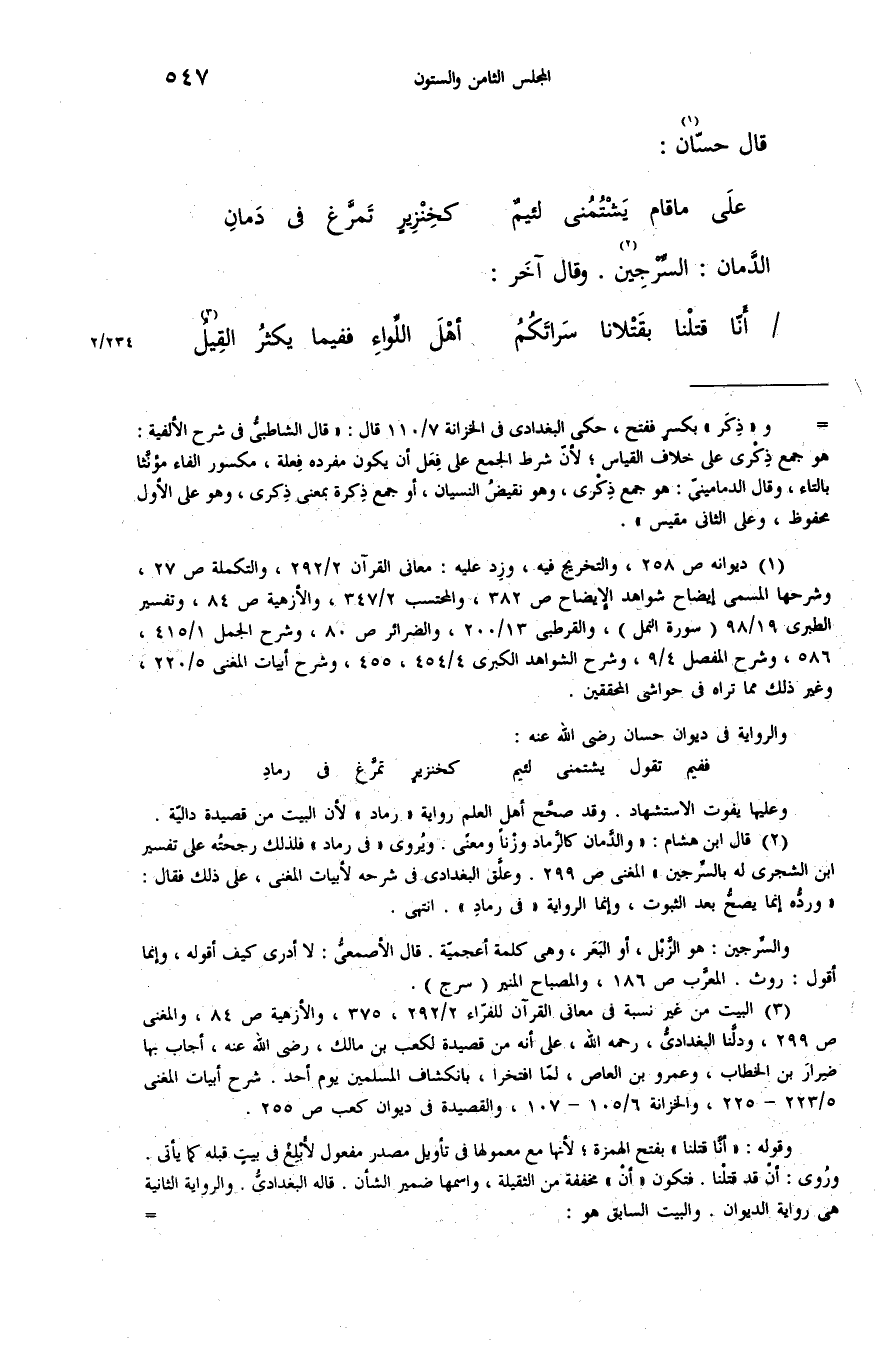 المجلس الثامن والستون ٥٤٧
قال حسّان (١) :
علَى ماقام يَشْتُمُنى لئيمٌ كخِنْزِيرٍ تَمرَّغ فى دَمانِ
الدَّمان : السِّرْجِين (٢) . وقال آخَر :
/ أَنَّا قتلْنا بقَتْلانا سَراتَكُمُ أهْلَ اللِّواءِ ففيما يكثرُ القِيلُ (٣) ٢/٢٣٤
= و « ذِكَر » بكسرٍ ففتح ، حكى البغدادى فى الخزانة ١١٠/٧ قال : « قال الشاطبىُّ فى شرح الألفية :
هو جمع ذِكْرى على خلاف القياس ؛ لأنّ شرط الجمع على فِعَل أن يكون مفرده فِعلة ، مكسور الفاء مؤنّثا
بالتاء ، وقال الدمامينىّ : هو جمع ذِكْرى ، وهو نقيضُ النسيان ، أو جمع ذِكرة بمعنى ذِكرى ، وهو على الأول
محفوظ ، وعلى الثانى مقيس » .
(١) ديوانه ص ٢٥٨ ، والتخريج فيه ، وزِد عليه : معانى القرآن ٢٩٢/٢ ، والتكملة ص ٢٧ ،
وشرحها المسمى إيضاح شواهد الإيضاح ص ٣٨٢ ، والمحتسب ٣٤٧/٢ ، والأزهية ص ٨٤ ، وتفسير
الطبرى ٩٨/١٩ ( سورة النمل ) ، والقرطبى ٢٠٠/١٣ ، والضرائر ص ٨٠ ، وشرح الجمل ٤١٥/١ ،
٥٨٦ ، وشرح المفصل ٩/٤ ، وشرح الشواهد الكبرى ٤٥٤/٤ ، ٤٥٥ ، وشرح أبيات المغنى ٢٢٠/٥ ،
وغير ذلك مما تراه فى حواشى المحققين .
والرواية فى ديوان حسان رضى الله عنه :
ففيم تقول يشتمنى لئيم كخنزيرٍ تمرَّغ فى رمادِ
وعليها يفوت الاستشهاد . وقد صحَّح أهل العلم رواية « رماد » لأن البيت من قصيدة داليّة .
(٢) قال ابن هشام : « والدَّمان كالرَّماد وزْناً ومعنًى . ويُروى « فى رماد » فلذلك رجحتُه على تفسير
ابن الشجرى له بالسِّرجين » المغنى ص ٢٩٩ . وعلَّق البغدادى فى شرحه لأبيات المغنى ، على ذلك فقال :
« وردُّه إنما يصحُّ بعد الثبوت ، وإنما الرواية « فى رمادِ » . انتهى .
والسِّرجين : هو الزِّبْل ، أو البَعَر ، وهى كلمة أعجميّة . قال الأصمعىُّ : لا أدرى كيف أقوله ، وإنما
أقول : روث . المعرَّب ص ١٨٦ ، والمصباح المنير ( سرج ) .
(٣) البيت من غير نسبة فى معانى القرآن للفرّاء ٢٩٢/٢ ، ٣٧٥ ، والأزهية ص ٨٤ ، والمغنى
ص ٢٩٩ ، ودلَّنا البغدادىُّ ، رحمه الله ، على أنه من قصيدة لكعب بن مالك ، رضى الله عنه ، أجاب بها
ضِرارَ بن الخطاب ، وعمرو بن العاص ، لمّا افتخرا ، بانكشاف المسلمين يوم أحد . شرح أبيات المغنى
٢٢٣/٥ – ٢٢٥ ، والخزانة ١٠٥/٦ – ١٠٧ ، والقصيدة فى ديوان كعب ص ٢٥٥ .
وقوله : « أنَّا قتلنا » بفتح الهمزة ؛ لأنها مع معمولها فى تأويل مصدر مفعول لأَبْلِغْ فى بيتٍ قبله كما يأتى .
ورُوى : أنْ قد قتلْنا . فتكون « أنْ » مخففة من الثقيلة ، واسمها ضمير الشأن . قاله البغدادىُّ . والرواية الثانية
هى رواية الديوان . والبيت السابق هو : =